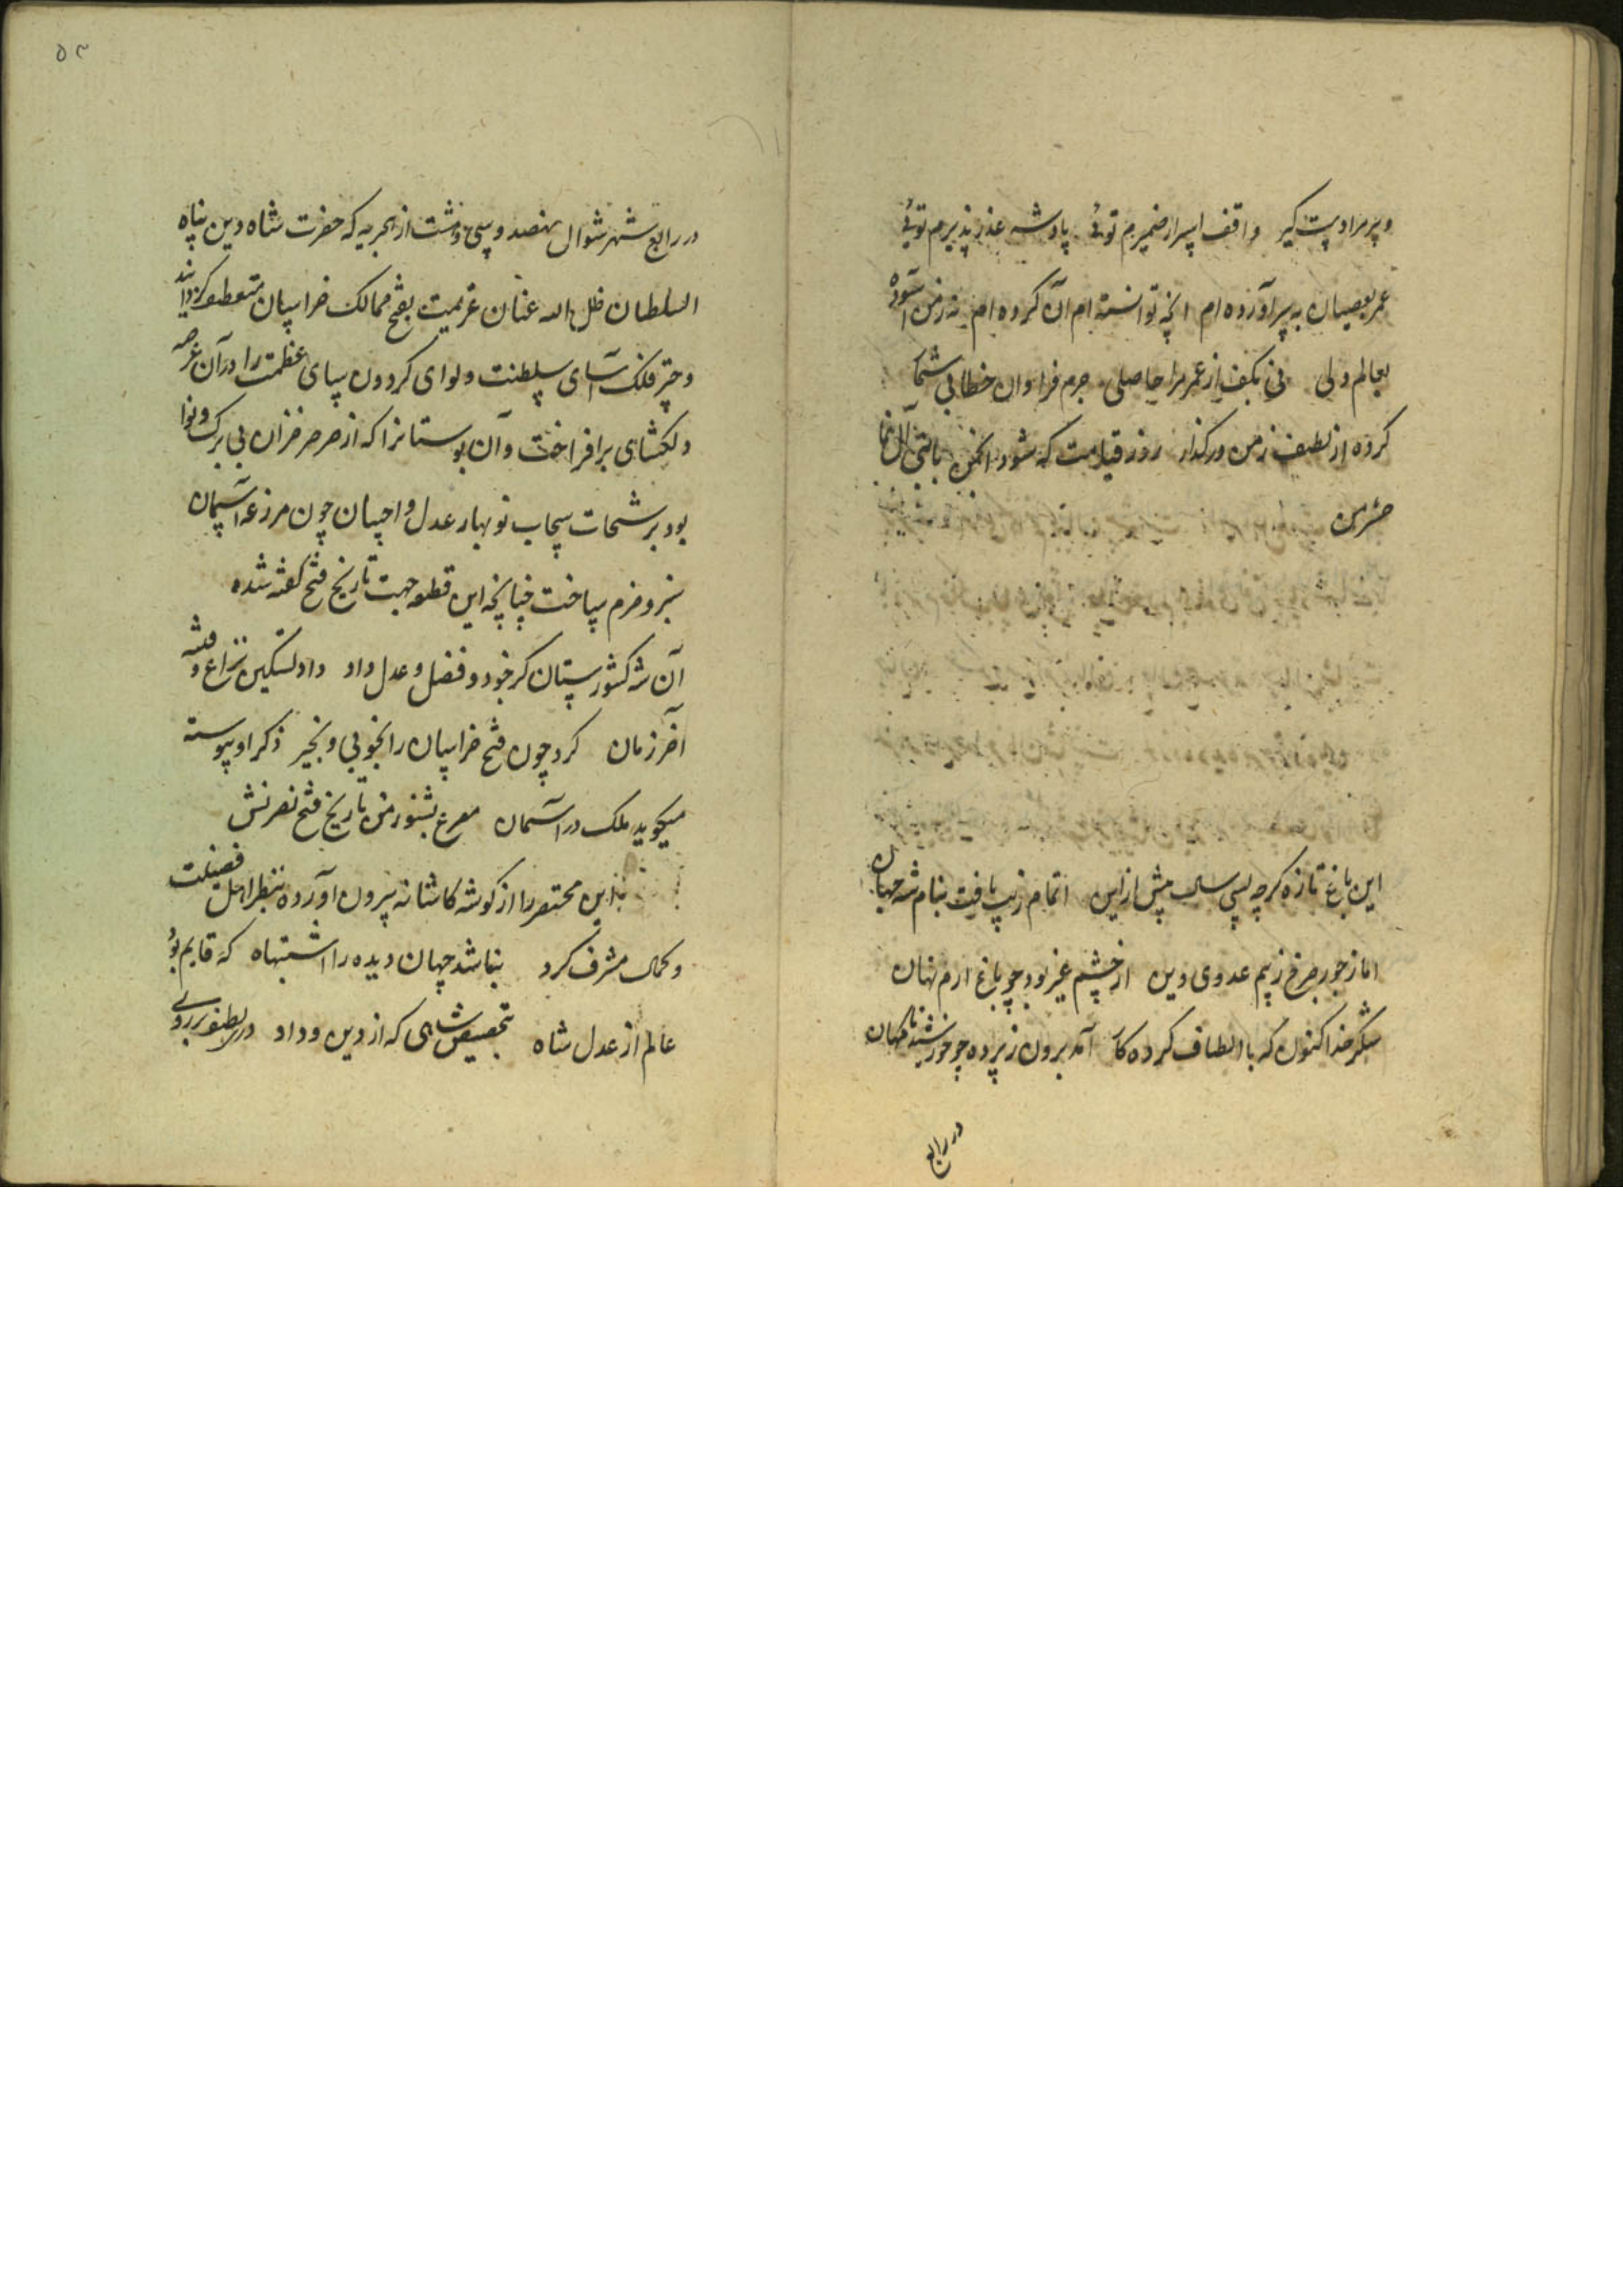 و پر مرا دست گیر واقف اسرار ضمیرم توئی پادشه عذر پذیرم توئی
عمر بعصیان بسر آورده ام انچه توانسته ام آن کرده ام نه ز من آسوده
بعالم دلی نی بکف از عمر مرا حاصلی جرم فراوان خطا بی شما
کرده از لطف ز من در گذار روز قیامت که شود انجمن با نبی و آل نما
حشر من
این باغ تازه کرچه سی سال پیش ازین اتمام زیب یافت بنام شه جهان
اما ز جور چرخ ز بیم عدوی دین از چشم غیر بود چو باغ ارم نهان
شکر خدا کنون که با الطاف کرده کار آمد برون ز پرده چو خورشید
در رابع
۵۳
در رابع شهر شوال نهصد و سی و هشت از هجریه که حضرت شاه دین پناه
السلطان ظل الله عنان عزیمت بفتح ممالک خراسان منعطف کردانید
و چتر فلک آسای سلطنت و لوای کردون سای عظمت را در آن عرصه
دلکشای برافراخت و آن بوستانرا که از صرصر خزان بی برک و نوا
بود برشحات سحاب نوبهار عدل و احسان چون مرزعه آسمان
سبز و خرم ساخت چنانچه این قطعه جهت تاریخ فتح کفته شده
آن شه کشورستان کز جود و فضل و عدل و داد داد تسکین نزاع و فتنه
آخر زمان کرد چون فتح خراسان را بخوبی و بخیر ذکر او پیوسته
میکوید ملک در آسمان مصرع بشنو ز من تاریخ فتح نصرتش
این مختصر را از کوشه کاشانه بیرون آورده بنظر اهل فضیلت
و کمال مشرف کرد نباشد جهان دیده را اشتباه که قایم بود
عالم از عدل شاه بتخصیص شاهی که از دین و داد در بر روی